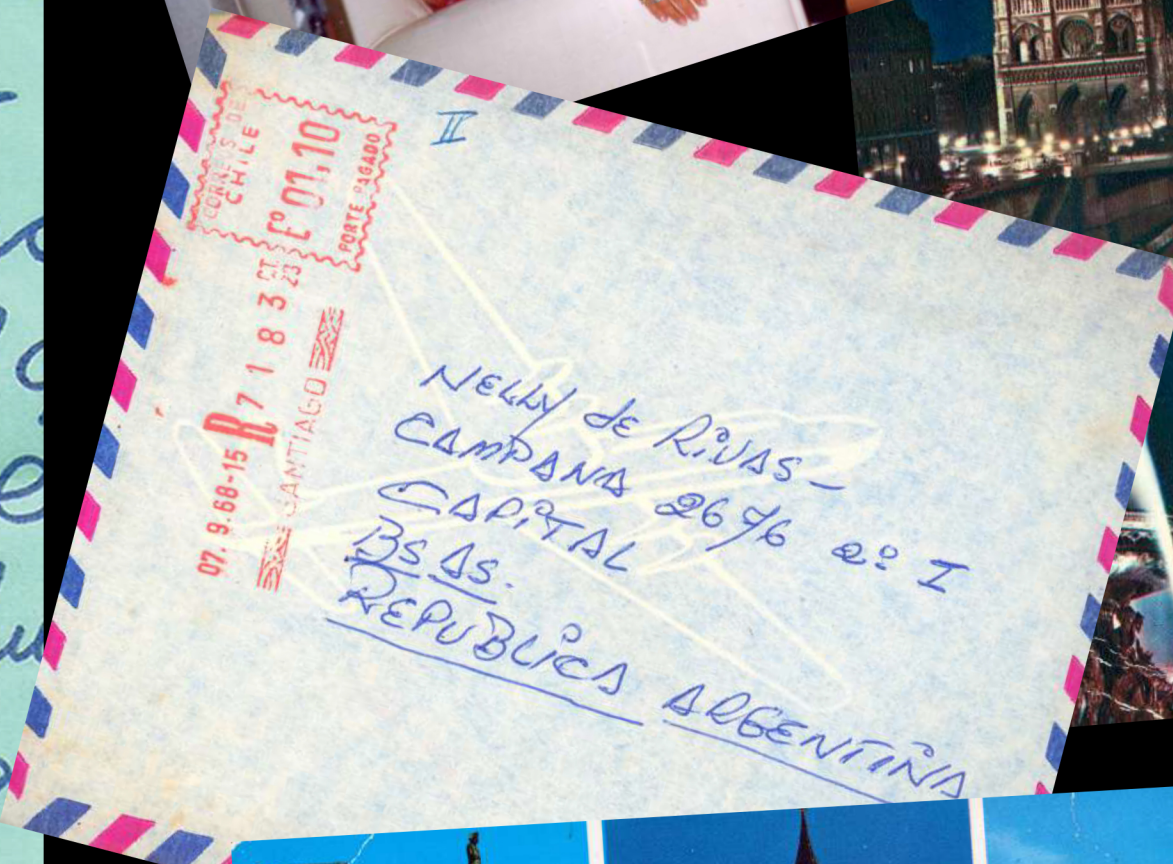 II
CORREOS DE
CHILE
Eº 01,10
PORTE PAGADO
CT.
23
07. 9.68-15 R 7 1 8 3
SANTIAGO
NELLY de RIVAS-
CAMPANA 2676 2º I
CAPITAL
BS AS.
REPUBLICA ARGENTINA